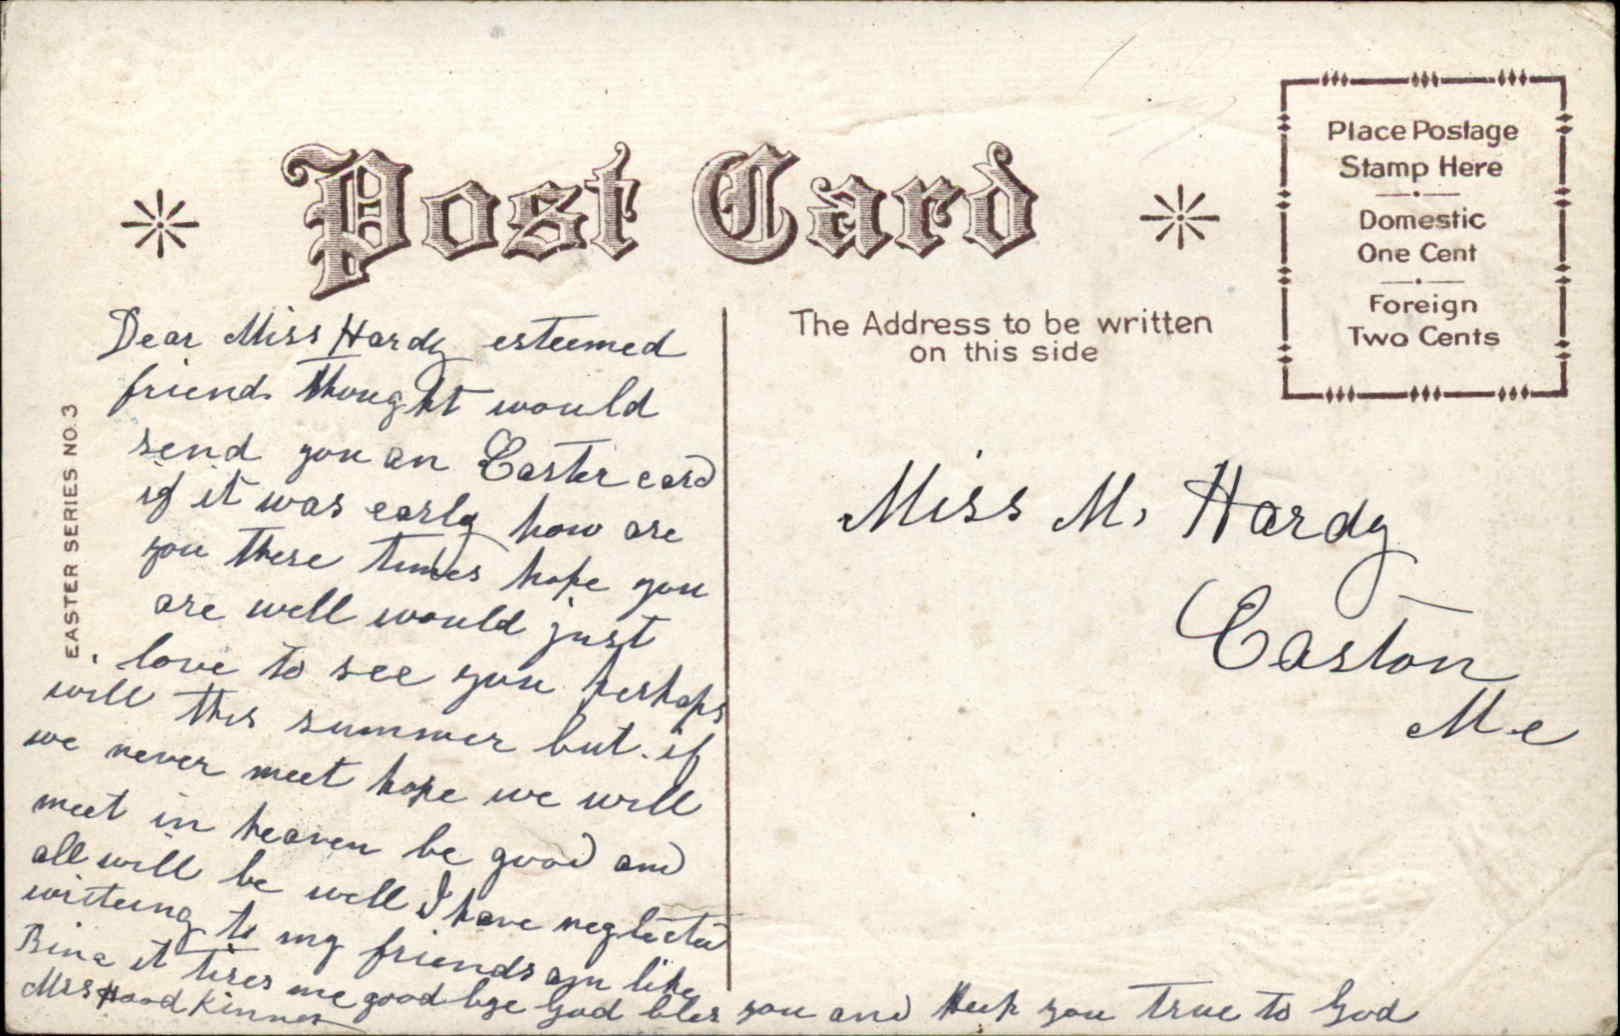 Post Card
Place Postage
Stamp Here
Domestic
One Cent
Foreign
Two Cents
The Address to be written
on this side
EASTER SERIES NO. 3
Dear Miss Hardy esteemed
friend thought would
send you an Easter card
if it was early how are
you these times hope you
are well would just
love to see you perhaps
will this summer but if
we never meet hope we will
meet in heaven be good and
all will be well I have neglected
writeing to my friends am like
Bina it tires me good bye God bles you and keep you true to God
Mrs Hood Kinney
Miss M. Hardy
Easton
Me